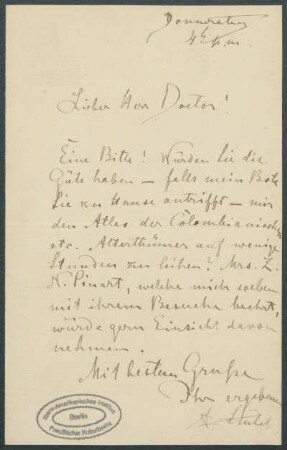 Donnerstag
4h p.m.
Lieber Herr Doctor!
Eine Bitte! Würden Sie die
Güte haben – falls mein Bote
Sie zu Hause antrifft – mir
den Atlas der Colombianischen
etc. Alterthümer auf wenige
Stunden zu leihen? Mrs. Z.
N. Pinart, welche mich soeben
mit ihrem Besuche beehrt,
würde gern Einsicht davon
nehmen.
Mit bestem Grusse
Ihr ergebener
Ibero-Amerikanisches Institut
Berlin
Preußischer Kulturbesitz